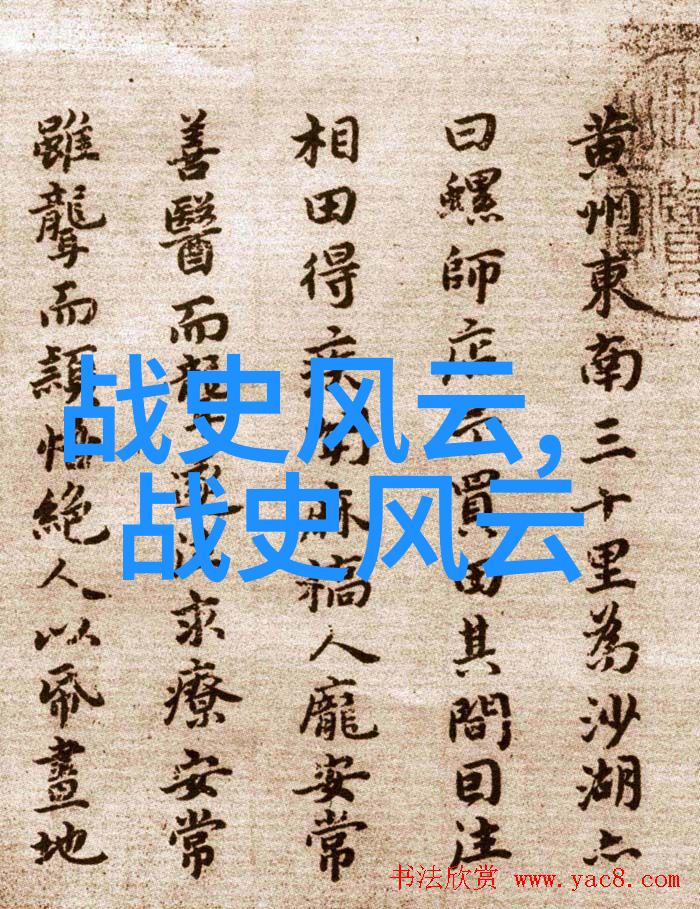 黄州東南三十里為沙湖亦
曰螺師店買田其間因往
相田得疾麻槁人龐安常
善醫而聾求療安常
雖聾而穎悟絕人以帋畫地
战史风云,
战史风云
书法欣赏 www.yac8.com